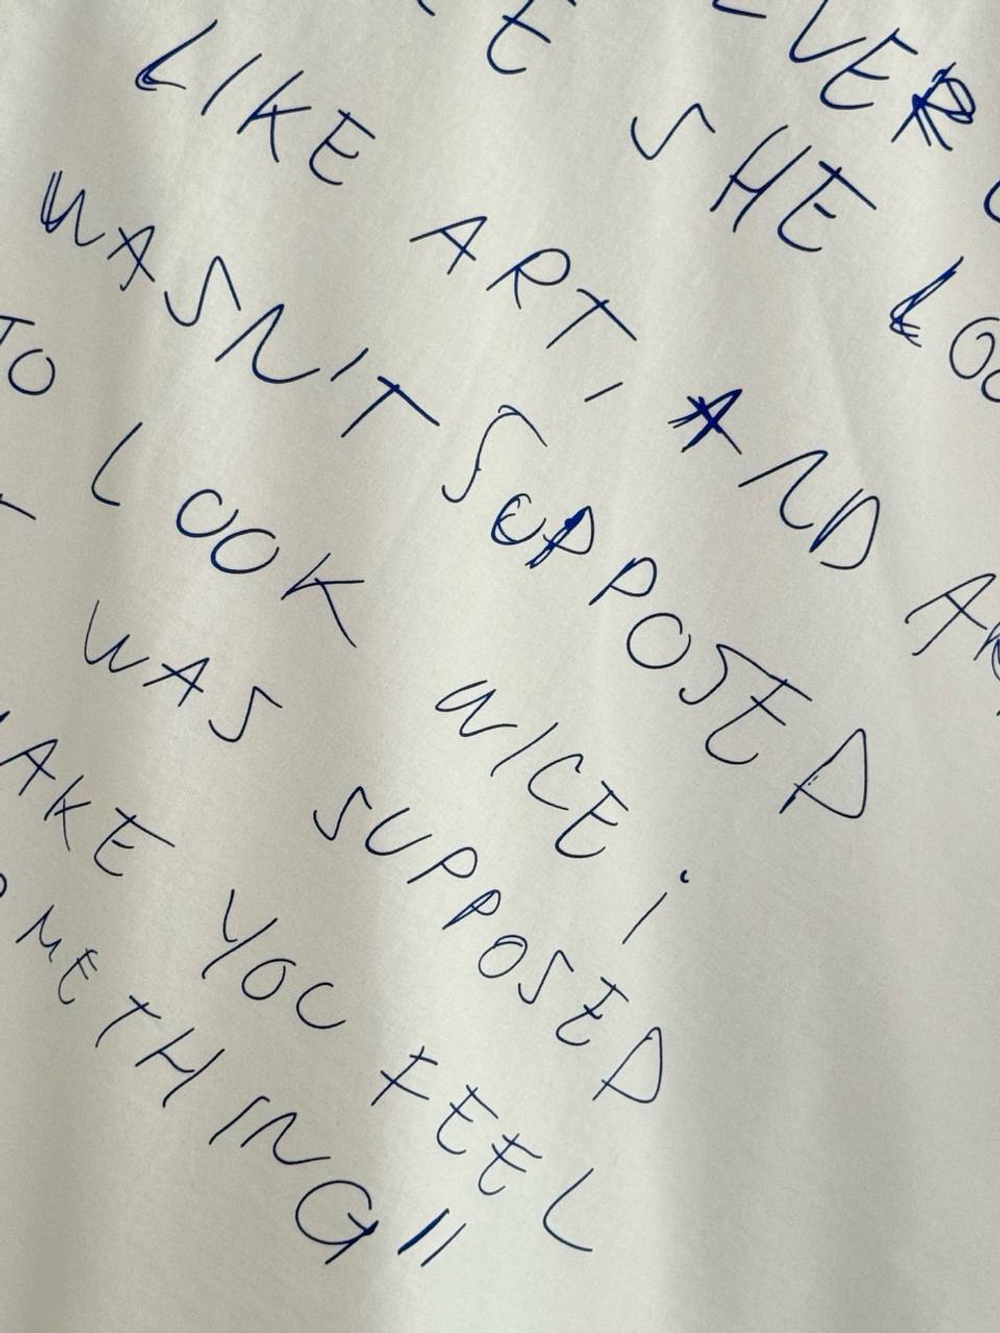 EVER
E SHE LOO
LIKE ART, AND AR
WASN'T SUPPOSED
TO LOOK NICE ;
WAS SUPPOSED
MAKE YOU FEEL
OMETHING"